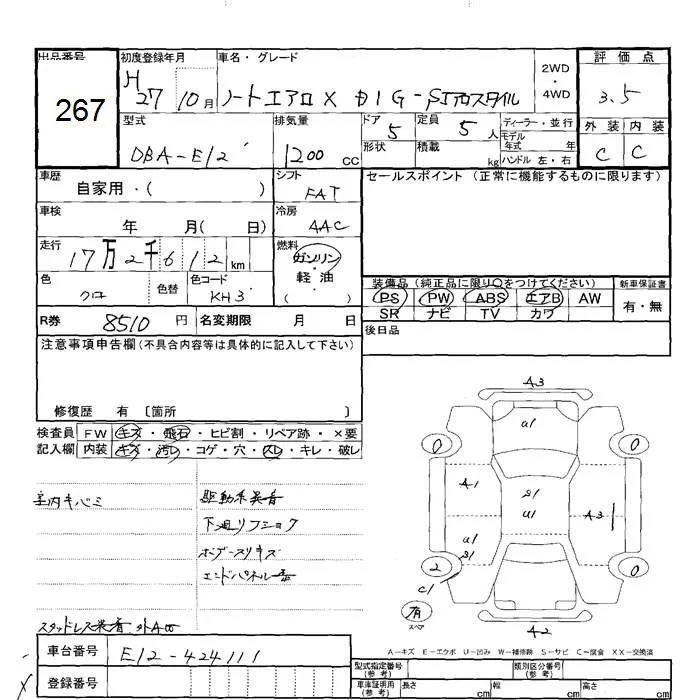 出品番号 初度登録年月 車名・グレード 2WD・4WD 評価点
267 H27 10月 ノートエアロX DIG-Sエアロスタイル 3.5
型式 排気量 ドア 5 定員 5人 ディーラー・並行 外装 内装
DBA-E12 1200cc 形状 積載 kg モデル年式 年 C C
ハンドル 左・右
車歴 自家用・( ) シフト FAT セールスポイント(正常に機能するものに限ります)
車検 年 月( 日) 冷房 AAC
走行 17万2千612km 燃料 ガソリン
軽・油
( )
色 クロ 色替 色コード KH3
装備品(純正品に限り○をつけてください) 新車保証書
PS PW ABS エアB AW 有・無
SR ナビ TV カワ
R券 8510円 名変期限 月 日 後日品
注意事項申告欄(不具合内容等は具体的に記入して下さい)
修復歴 有 〔箇所 〕
検査員 FW キズ・飛石・ヒビ割・リペア跡・×要
記入欄 内装 キズ・汚レ・コゲ・穴・スレ・キレ・破レ
室内キバミ
駆動系異音
下廻リフショク
スタッドレス装着 外AW
A3
U1
0 0
A1 S1 U1 A3
U1 S1
2 0
C1
有
スペア
A2
A-キズ E-エクボ U-凹み W-補修跡 S-サビ C-腐食 XX-交換済
車台番号 E12-424111
登録番号
型式指定番号(参考) 類別区分番号(参考)
車庫証明用(参考) 長さ cm 幅 cm 高さ cm